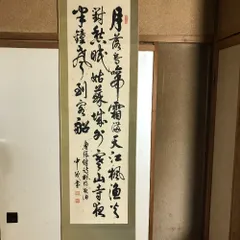 月落烏啼霜満天江楓漁火
對愁眠姑蘇城外寒山寺夜
半鐘聲到客船
唐張継詩楓橋夜泊